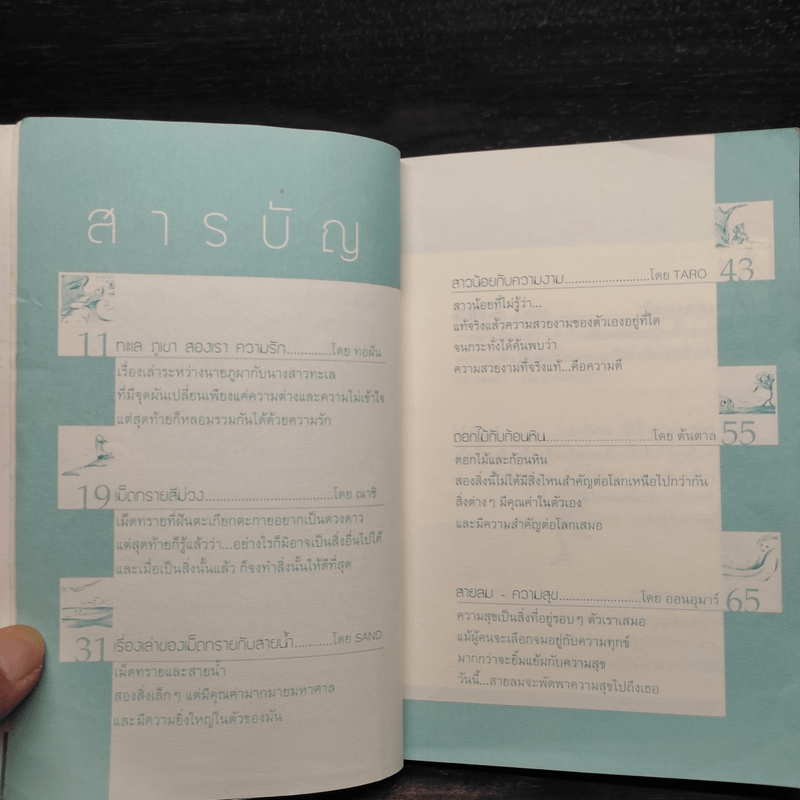 สารบัญ
11 ทะเล ภูเขา สองเรา ความรัก............โดย ทอฝัน
เรื่องเล่าระหว่างนายภูผากับนางสาวทะเล
ที่มีจุดผันเปลี่ยนเพียงแค่ความต่างและความไม่เข้าใจ
แต่สุดท้ายก็หลอมรวมกันได้ด้วยความรัก
19 เม็ดทรายสีม่วง..............................โดย ณาชิ
เม็ดทรายที่ฝันตะเกียกตะกายอยากเป็นดวงดาว
แต่สุดท้ายก็รู้แล้วว่า...อย่างไรก็มิอาจเป็นสิ่งอื่นไปได้
และเมื่อเป็นสิ่งนั้นแล้ว ก็จงทำสิ่งนั้นให้ดีที่สุด
31 เรื่องเล่าของเม็ดทรายกับสายน้ำ..........โดย SAND
เม็ดทรายและสายน้ำ
สองสิ่งเล็กๆ แต่มีคุณค่ามากมายมหาศาล
และมีความยิ่งใหญ่ในตัวของมัน
สาวน้อยกับความงาม........................โดย TARO 43
สาวน้อยที่ไม่รู้ว่า...
แท้จริงแล้วความสวยงามของตัวเองอยู่ที่ใด
จนกระทั่งได้ค้นพบว่า
ความสวยงามที่จริงแท้...คือความดี
ดอกไม้กับก้อนหิน..............................โดย ต้นตาล 55
ดอกไม้และก้อนหิน
สองสิ่งนี้ไม่ได้มีสิ่งไหนสำคัญต่อโลกเหนือไปกว่ากัน
สิ่งต่างๆ มีคุณค่าในตัวเอง
และมีความสำคัญต่อโลกเสมอ
สายลม - ความสุข........................โดย ออนอุมาร์ 65
ความสุขเป็นสิ่งที่อยู่รอบๆ ตัวเราเสมอ
แม้ผู้คนจะเลือกจมอยู่กับความทุกข์
มากกว่าจะยิ้มแย้มกับความสุข
วันนี้...สายลมจะพัดพาความสุขไปถึงเธอ